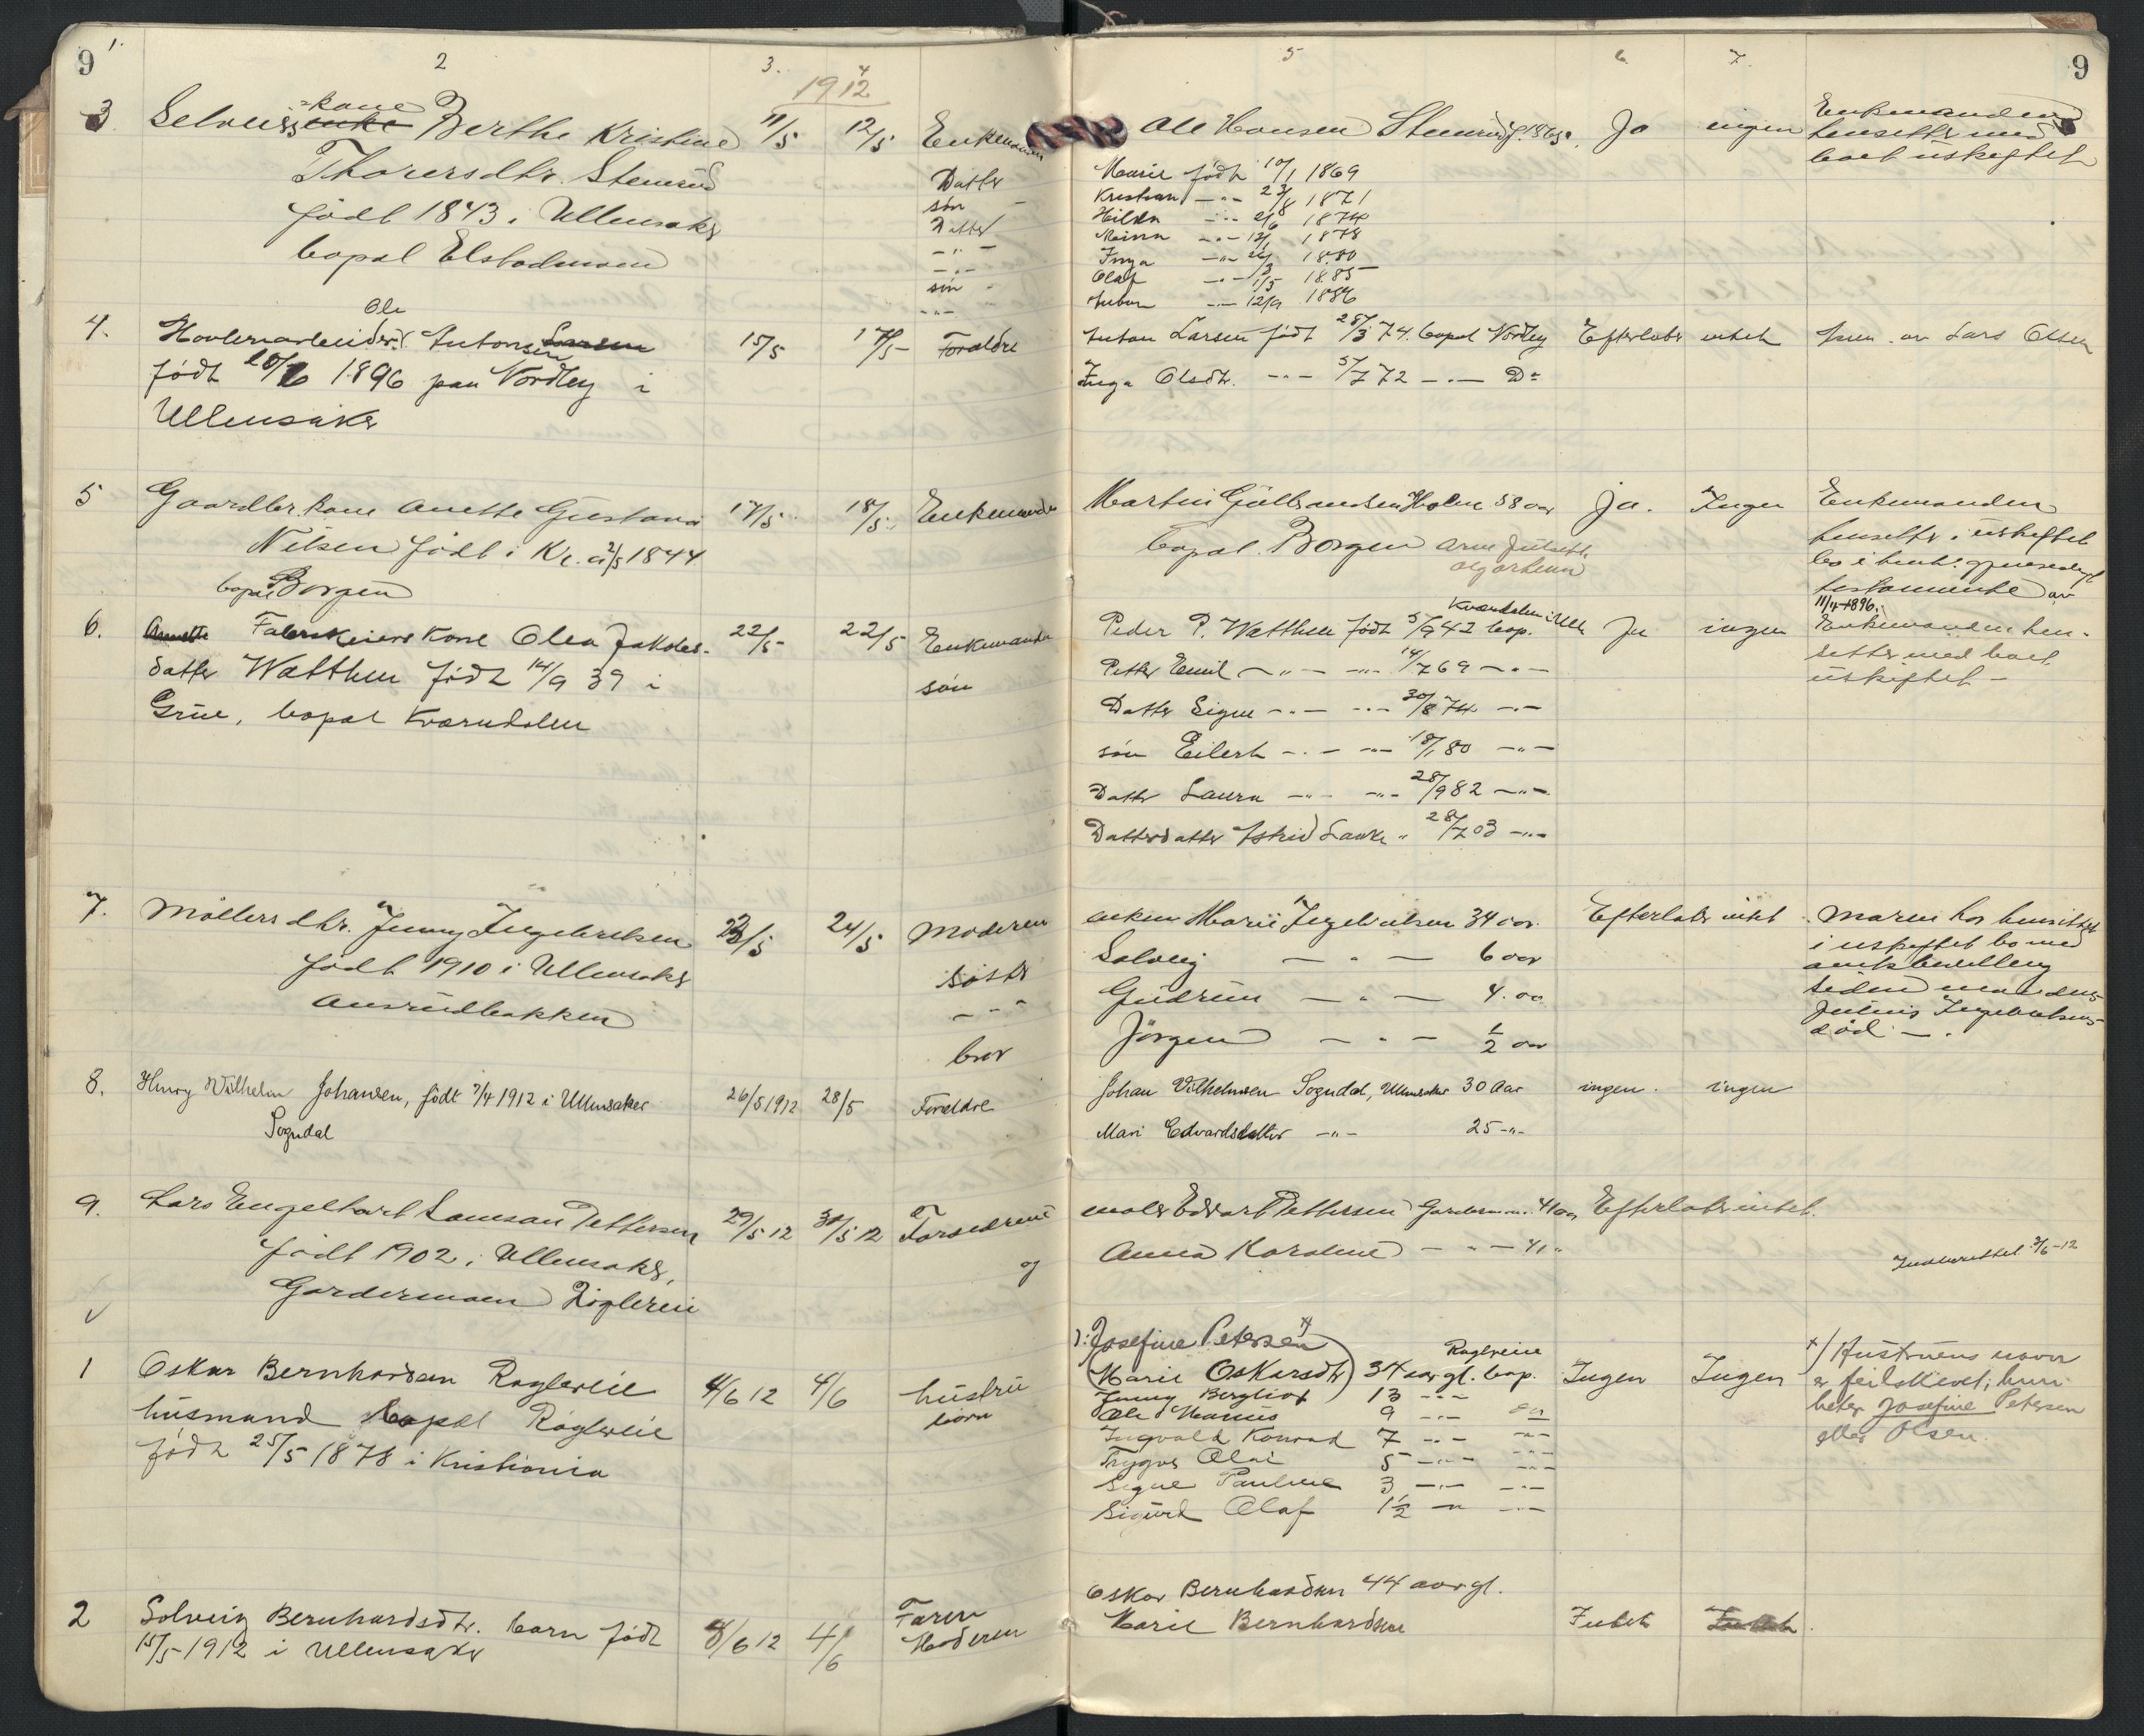 9
1.
2
3.
4
1912
3
Selveierskone enke Berthe Kristine
Thorersdtr. Stensrud
født 1843 i Ullensaker
bopæl Elstadmoen
11/5
12/5
Enkemanden
Datter
søn
Datter
-"-
-"-
søn
-"-
4.
Ole
Hovlerarbeider Antonsen Larsen
født 1896 paa Nordby i
Ullensaker
15/5
17/5
Forældre
5
Gaardbr. kone Anette Gustava
Nilsen født i Kr.a 2/5 1844
bopæl Borgen
17/5
18/5
Enkemanden
6.
Anette Fabrikeiers Kone Olea Jakobs-
datter Watthne født 14/9 39 i
Grue, bopæl Kværndalen
22/5
22/5
Enkemanden
søn
7.
Møllers dtr. Jenny Ingebretsen
født 1910 i Ullensaker
Ausrudbakken
23/5
24/5
Moderen
søster
-"-
bror
8.
Henry Wilhelm Johansen, født 7/4 1912 i Ullensaker
Sogndal
26/5 1912
28/5
Forældre
9.
Lars Engelhart Samson Pettersen
født 1902 i Ullensaker,
Gardermoen
29/5 12
30/5 12
Forældrene
og
1
Oskar Bernhardsen Raglereie
husmand bopæl Raglereie
født 25/5 1878 i Kristiania
4/6 12
4/6
hustru
børn
2
Solveig Bernhardsdtr. barn født
15/5-1912 i Ullensaker
4/6
Faren
Moderen
5
6.
7.
9
Ole Hansen Stensrud
Ja
ingen
Enkemanden
hensetter med
boet uskiftet
Marie født 10/1 1869
Kristian -"- 23/8 1871
Hilda -"- 1874
Maina -"- 1878
Inga -"- 1880
Olaf -"- 1/5 1885
Anton -"- 12/9 1886
Anton Larsen født 28/3 74. bopæl Nordby
Efterlater
intet
av Lars Olsen
Inga Olsdtr. -"- 5/7 72 -"- Do
Martin Gulbrandsen Holm 58 aar
bopæl Borgen
Ja.
Ingen
Enkemanden
hensetter i uskiftet
bo i henh. gjensidigt
testamente av
11/4 1896.
Peder P. Watthne født 5/9 42 bop. Kværndalen i Ull.
Ja
ingen
Enkemanden hen-
setter med boet
uskiftet -
Petter Emil -"- -"- 14/7 69 -"-
Datter Signe -"- -"- 30/8 74 -"-
søn Eilert -"- -"- 18/1 80 -"-
Datter Laura -"- -"- 28/9 82 -"-
Datterdatter Astrid Laura " 28/7 03 -"-
enken Marie Ingebretsen 34 aar.
Efterlater intet
Maren har hensittet
i uskiftet bo med
amtsbevilling
siden mandens
Julius Ingebretsens
død -.
Solveig - " - 6 aar
Gudrun - " - 4 aar
Jørgen - " - 1/2 aar
Johan Vilhelmsen Sogndal, Ullensaker 30 Aar
ingen.
ingen
Mari Edvardsdatter -"- 25 -"-
maler Edvart Pettersen Gardermoen 41 aar
Efterlater intet.
Anna Karoline - " - 41 "
Indberettet 3/6-12
Josefine Petersen x)
(Marie Oskarsdtr) 34 aar gl. bop. Raglereie
Ingen
Ingen
x/ Hustruens navn
er feilskrevet; hun
heter Josefine Petersen
eller Olsen.
Jenny Bergliot 13 -"-
Ole Marius 9 -"-
Ingvald Konrad 7 -"- -"-
Trygve Olai 5 -"- -"-
Signe Pauline 3 -"- -"-
Sigurd Olaf 1 1/2 -"- -"-
Oskar Bernhardsen 44 aar gl.
Marie Bernhardsen
Intet
Intet